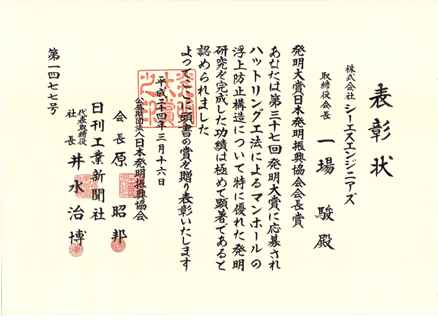 表彰状
株式会社 シーエスエンジニアズ
取締役会長 一場 駿 殿
発明大賞日本発明振興協会会長賞
あなたは第三十七回発明大賞に応募され
ハットリング工法によるマンホールの
浮上防止構造について特に優れた発明
研究を完成した功績は極めて顕著であると
認められました
よってここに頭書の賞を贈り表彰いたします
平成二十四年三月十六日
公益財団法人日本発明振興協会
会長 原 昭邦
日刊工業新聞社
代表取締役
社長 井水治博
第一四七七号